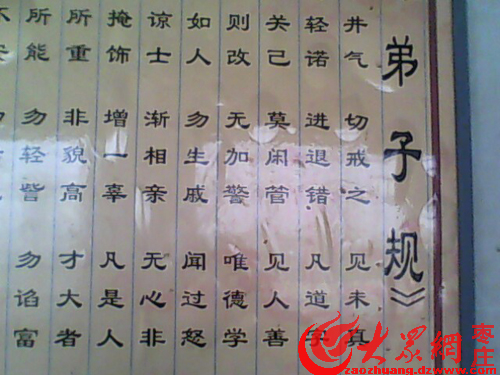 弟子规》
井气 切戒之 见未真
轻诺 进退错 凡道字
关己 莫闲管 见人善
则改 无加警 唯德学
如人 勿生戚 闻过怒
谅士 渐相亲 无心非
掩饰 增一辜 凡是人
所重 非貌高 才大者
所能 勿轻訾 勿谄富
大眾網 枣庄
zaozhuang.dzwww.com